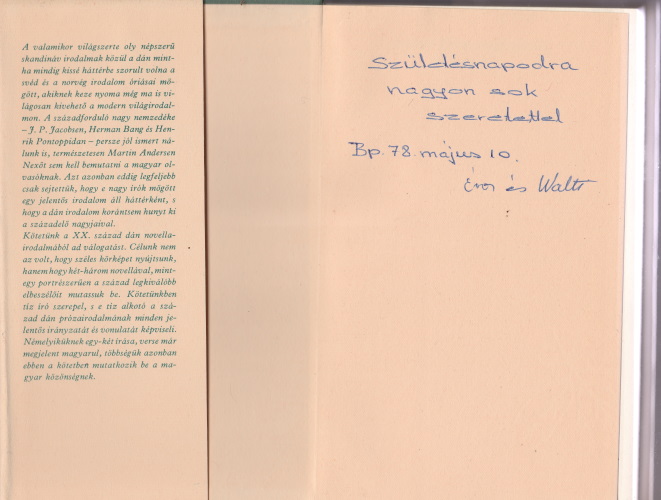 A valamikor világszerte oly népszerű
skandináv irodalmak közül a dán mint-
ha mindig kissé háttérbe szorult volna a
svéd és a norvég irodalom óriásai mö-
gött, akiknek keze nyoma még ma is vi-
lágosan kivehető a modern világirodal-
mon. A századforduló nagy nemzedéke
– J. P. Jacobsen, Herman Bang és Hen-
rik Pontoppidan – persze jól ismert ná-
lunk is, természetesen Martin Andersen
Nexőt sem kell bemutatni a magyar ol-
vasóknak. Azt azonban eddig legfeljebb
csak sejtettük, hogy e nagy írók mögött
egy jelentős irodalom áll háttérként, s
hogy a dán irodalom korántsem hunyt ki
a századelő nagyjaival.
Kötetünk a XX. század dán novella-
irodalmából ad válogatást. Célunk nem
az volt, hogy széles körképet nyújtsunk,
hanem hogy két-három novellával, mint-
egy portrészerűen a század legkiválóbb
elbeszélőit mutassuk be. Kötetünkben
tíz író szerepel, s e tíz alkotó a szá-
zad dán prózairodalmának minden je-
lentős irányzatát és vonulatát képviseli.
Némelyiküknek egy-két írása, verse már
megjelent magyarul, többségük azonban
ebben a kötetben mutatkozik be a ma-
gyar közönségnek.
Születésnapodra
nagyon sok
szeretettel
Bp. 78. május 10.
és